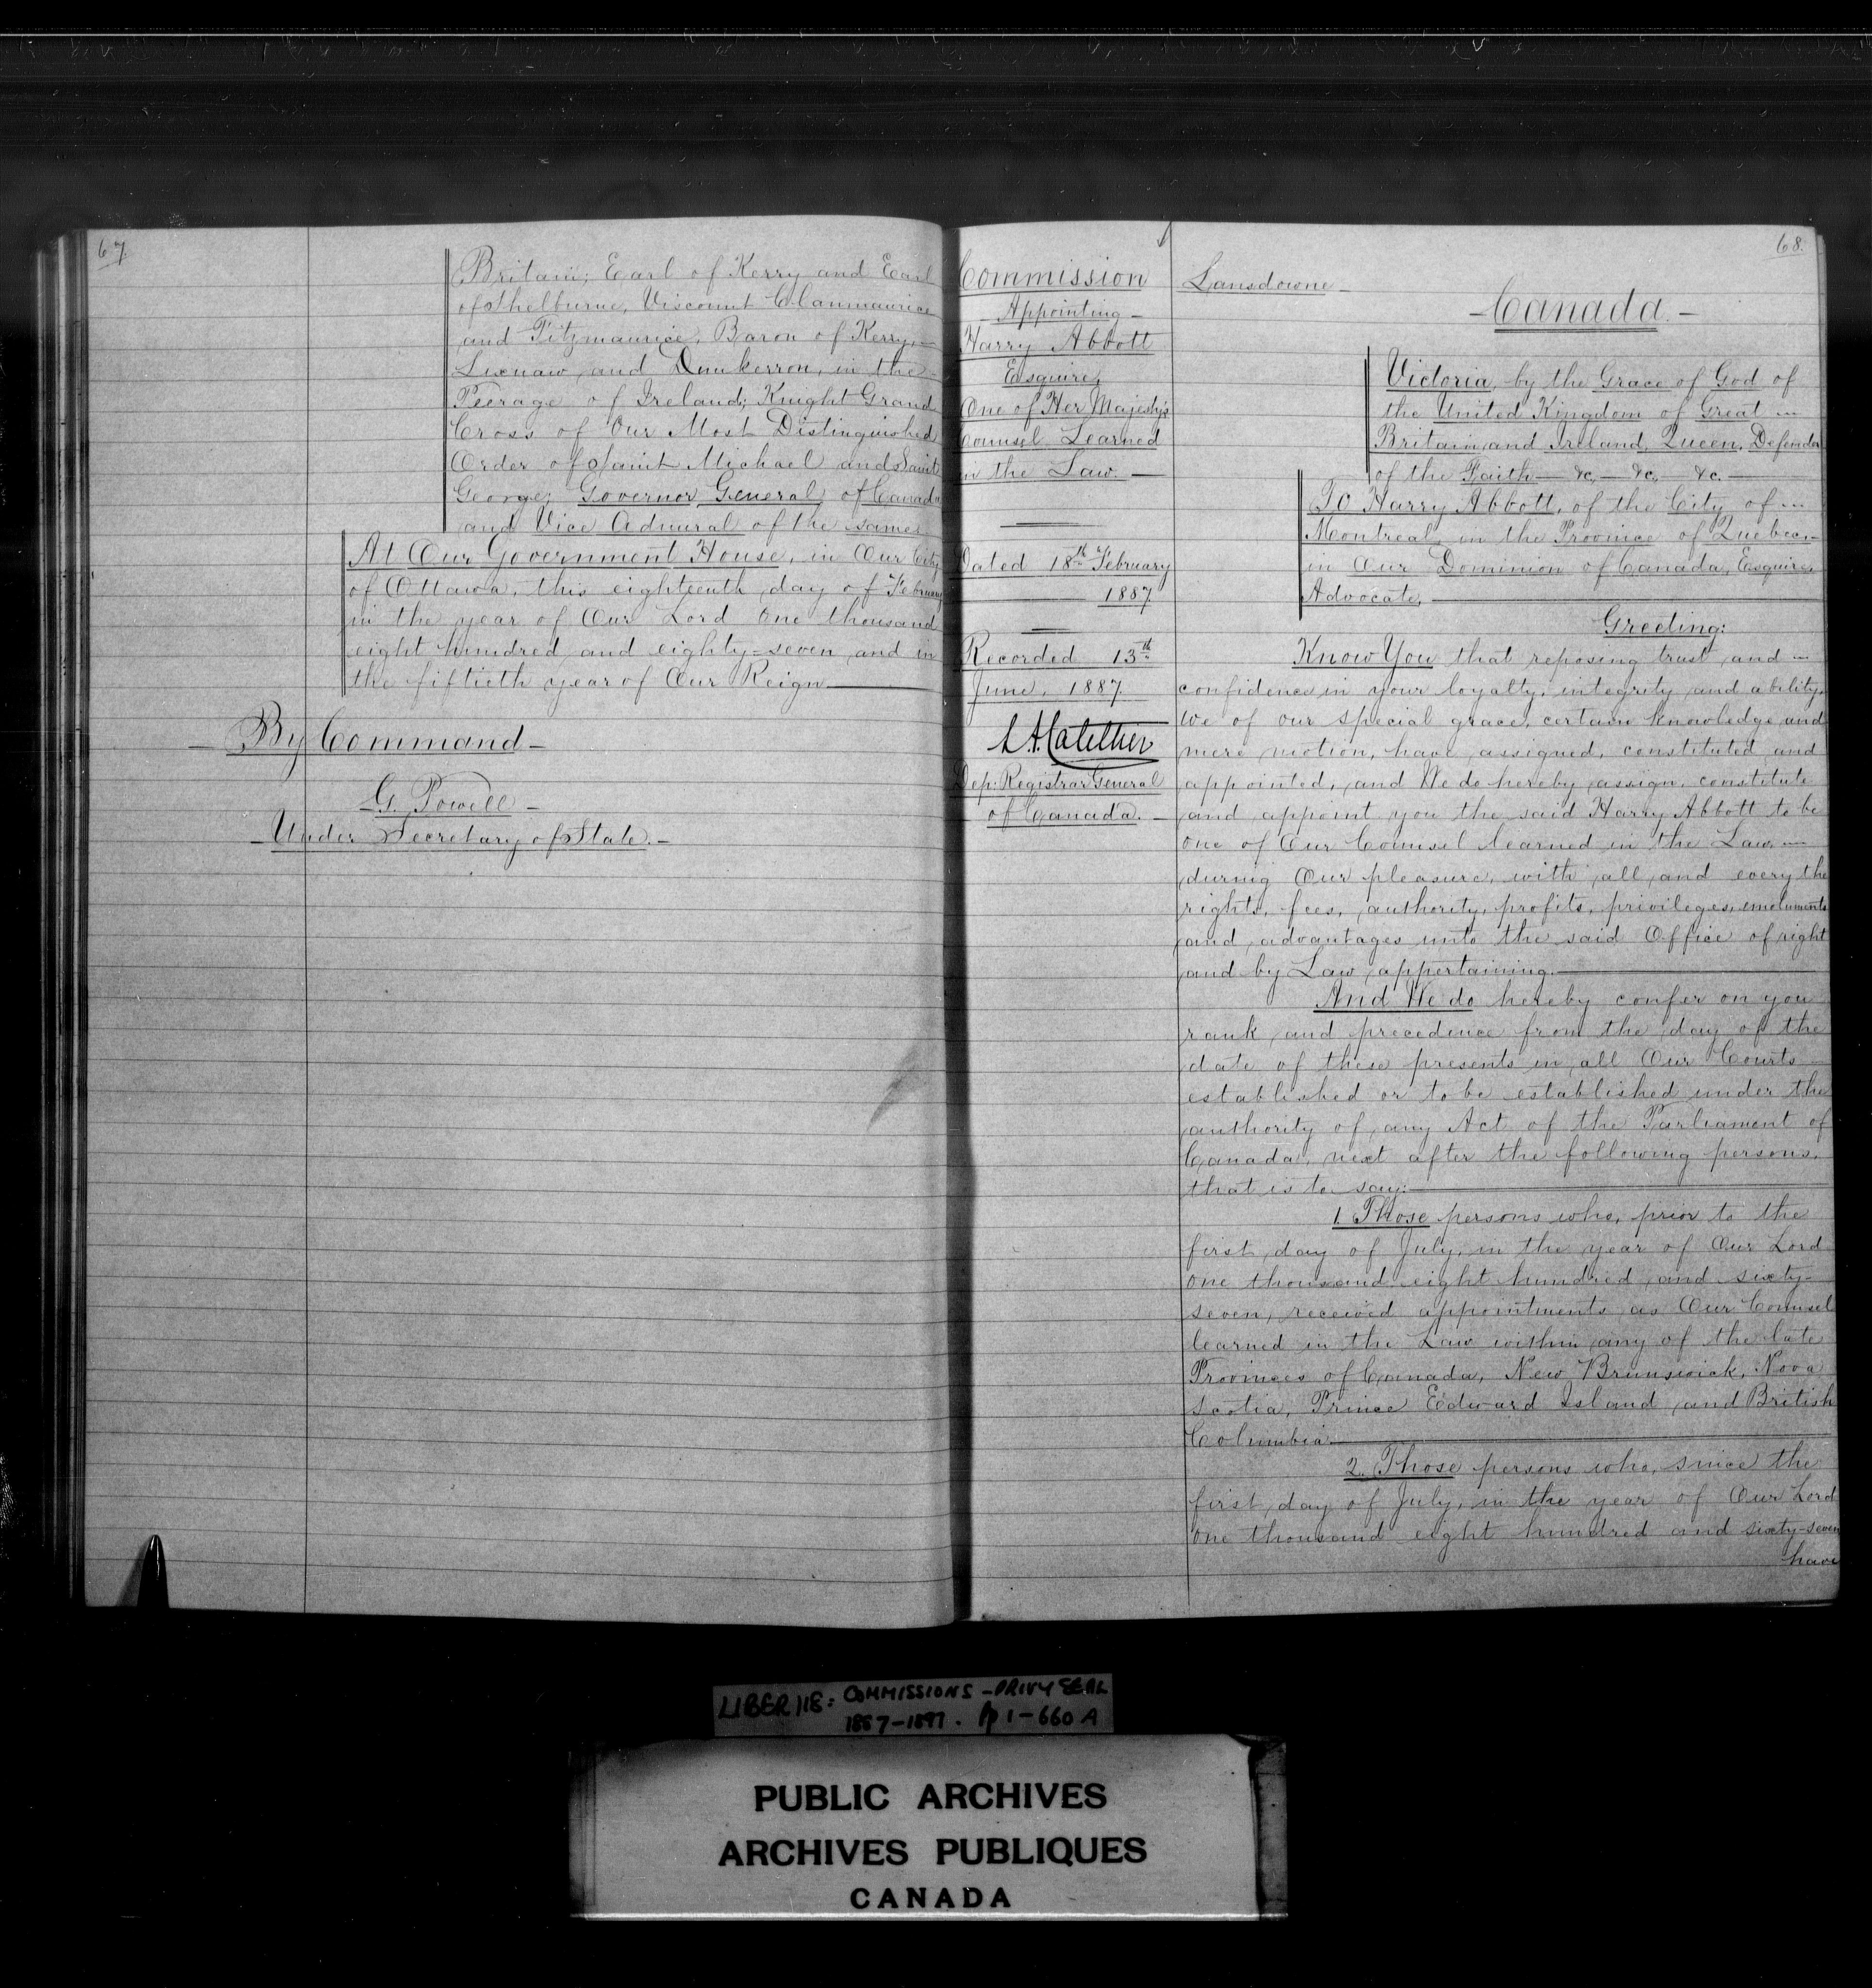 67.
Britain; Earl of Kerry and Earl
of Shelburne, Viscount Clanmaurice
and Fitzmaurice, Baron of Kerry,
Lixnaw and Dunkerron, in the
Peerage of Ireland; Knight Grand
Cross of Our Most Distinguished
Order of Saint Michael and Saint
George; Governor General of Canada
and Vice Admiral of the same.
At Our Government House, in Our City
of Ottawa, this eighteenth day of February
in the year of Our Lord One thousand
eight hundred and eighty-seven and in
the fiftieth year of Our Reign
By Command
G. Powell
Under Secretary of State.
68.
Commission
Appointing
Harry Abbott
Esquire,
One of Her Majesty's
Counsel Learned
in the Law.
Dated 18th February
1887
Recorded 13th
June, 1887.
Dep: Registrar General
of Canada.
Lansdowne
Canada.
Victoria, by the Grace of God of
the United Kingdom of Great
Britain and Ireland, Queen, Defender
of the Faith &c, &c, &c.
To Harry Abbott, of the City of
Montreal, in the Province of Quebec,
in Our Dominion of Canada, Esquire,
Advocate,
Greeting:
Know You that reposing trust and
confidence in your loyalty, integrity and ability,
We of our special grace, certain knowledge and
mere motion, have assigned, constituted and
appointed, and We do hereby assign, constitute
and appoint you the said Harry Abbott to be
one of Our Counsel learned in the Law
during Our pleasure, with all and every the
rights, fees, authority, profits, privileges, emoluments
and advantages unto the said Office of right
and by Law appertaining.
And We do hereby confer on you
rank and precedence from the day of the
date of these presents in all Our Courts
established or to be established under the
authority of any Act of the Parliament of
Canada, next after the following persons,
that is to say:
1. Those persons who, prior to the
first day of July, in the year of Our Lord
one thousand eight hundred and sixty-
seven, received appointments as Our Counsel
learned in the Law within any of the late
Provinces of Canada, New Brunswick, Nova
Scotia, Prince Edward Island and British
Columbia.
2. Those persons who, since the
first day of July, in the year of Our Lord
one thousand eight hundred and sixty-seven
have
LIBER 118: COMMISSIONS - PRIVY SEAL
1887-1897. pp 1-660 A
PUBLIC ARCHIVES
ARCHIVES PUBLIQUES
CANADA